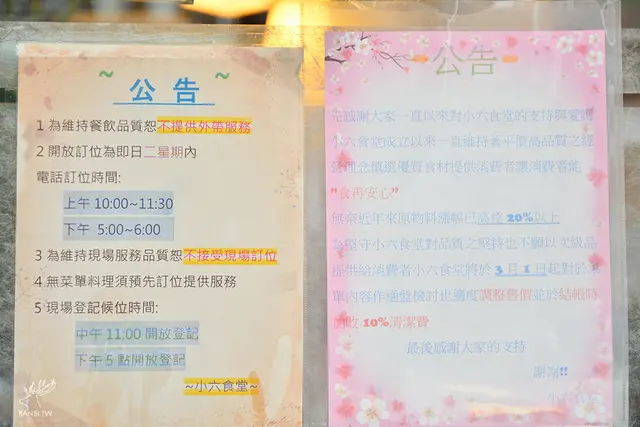 ~ 公告 ~
1 為維持餐飲品質恕不提供外帶服務
2 開放訂位為即日二星期內
電話訂位時間:
上午 10:00~11:30
下午 5:00~6:00
3 為維持現場服務品質恕不接受現場訂位
4 無菜單料理須預先訂位提供服務
5 現場登記候位時間:
中午 11:00 開放登記
下午 5 點開放登記
~小六食堂~
公告
感謝大家一直以來對小六食堂的支持與愛護
小六食堂成立以來一直維持著平價高品質之經
營理念慎選優質食材提供消費者讓消費者能
"食再安心"
無奈近年來原物料漲幅已高達 20%以上
為堅守小六食堂對品質之堅持也不願以次級品
提供給消費者小六食堂將於 3 月 1 日起對於菜
單內容作通盤檢討也適度調整售價並於結帳時
加收 10%清潔費
最後感謝大家的支持
謝謝!!
BANBI.TW